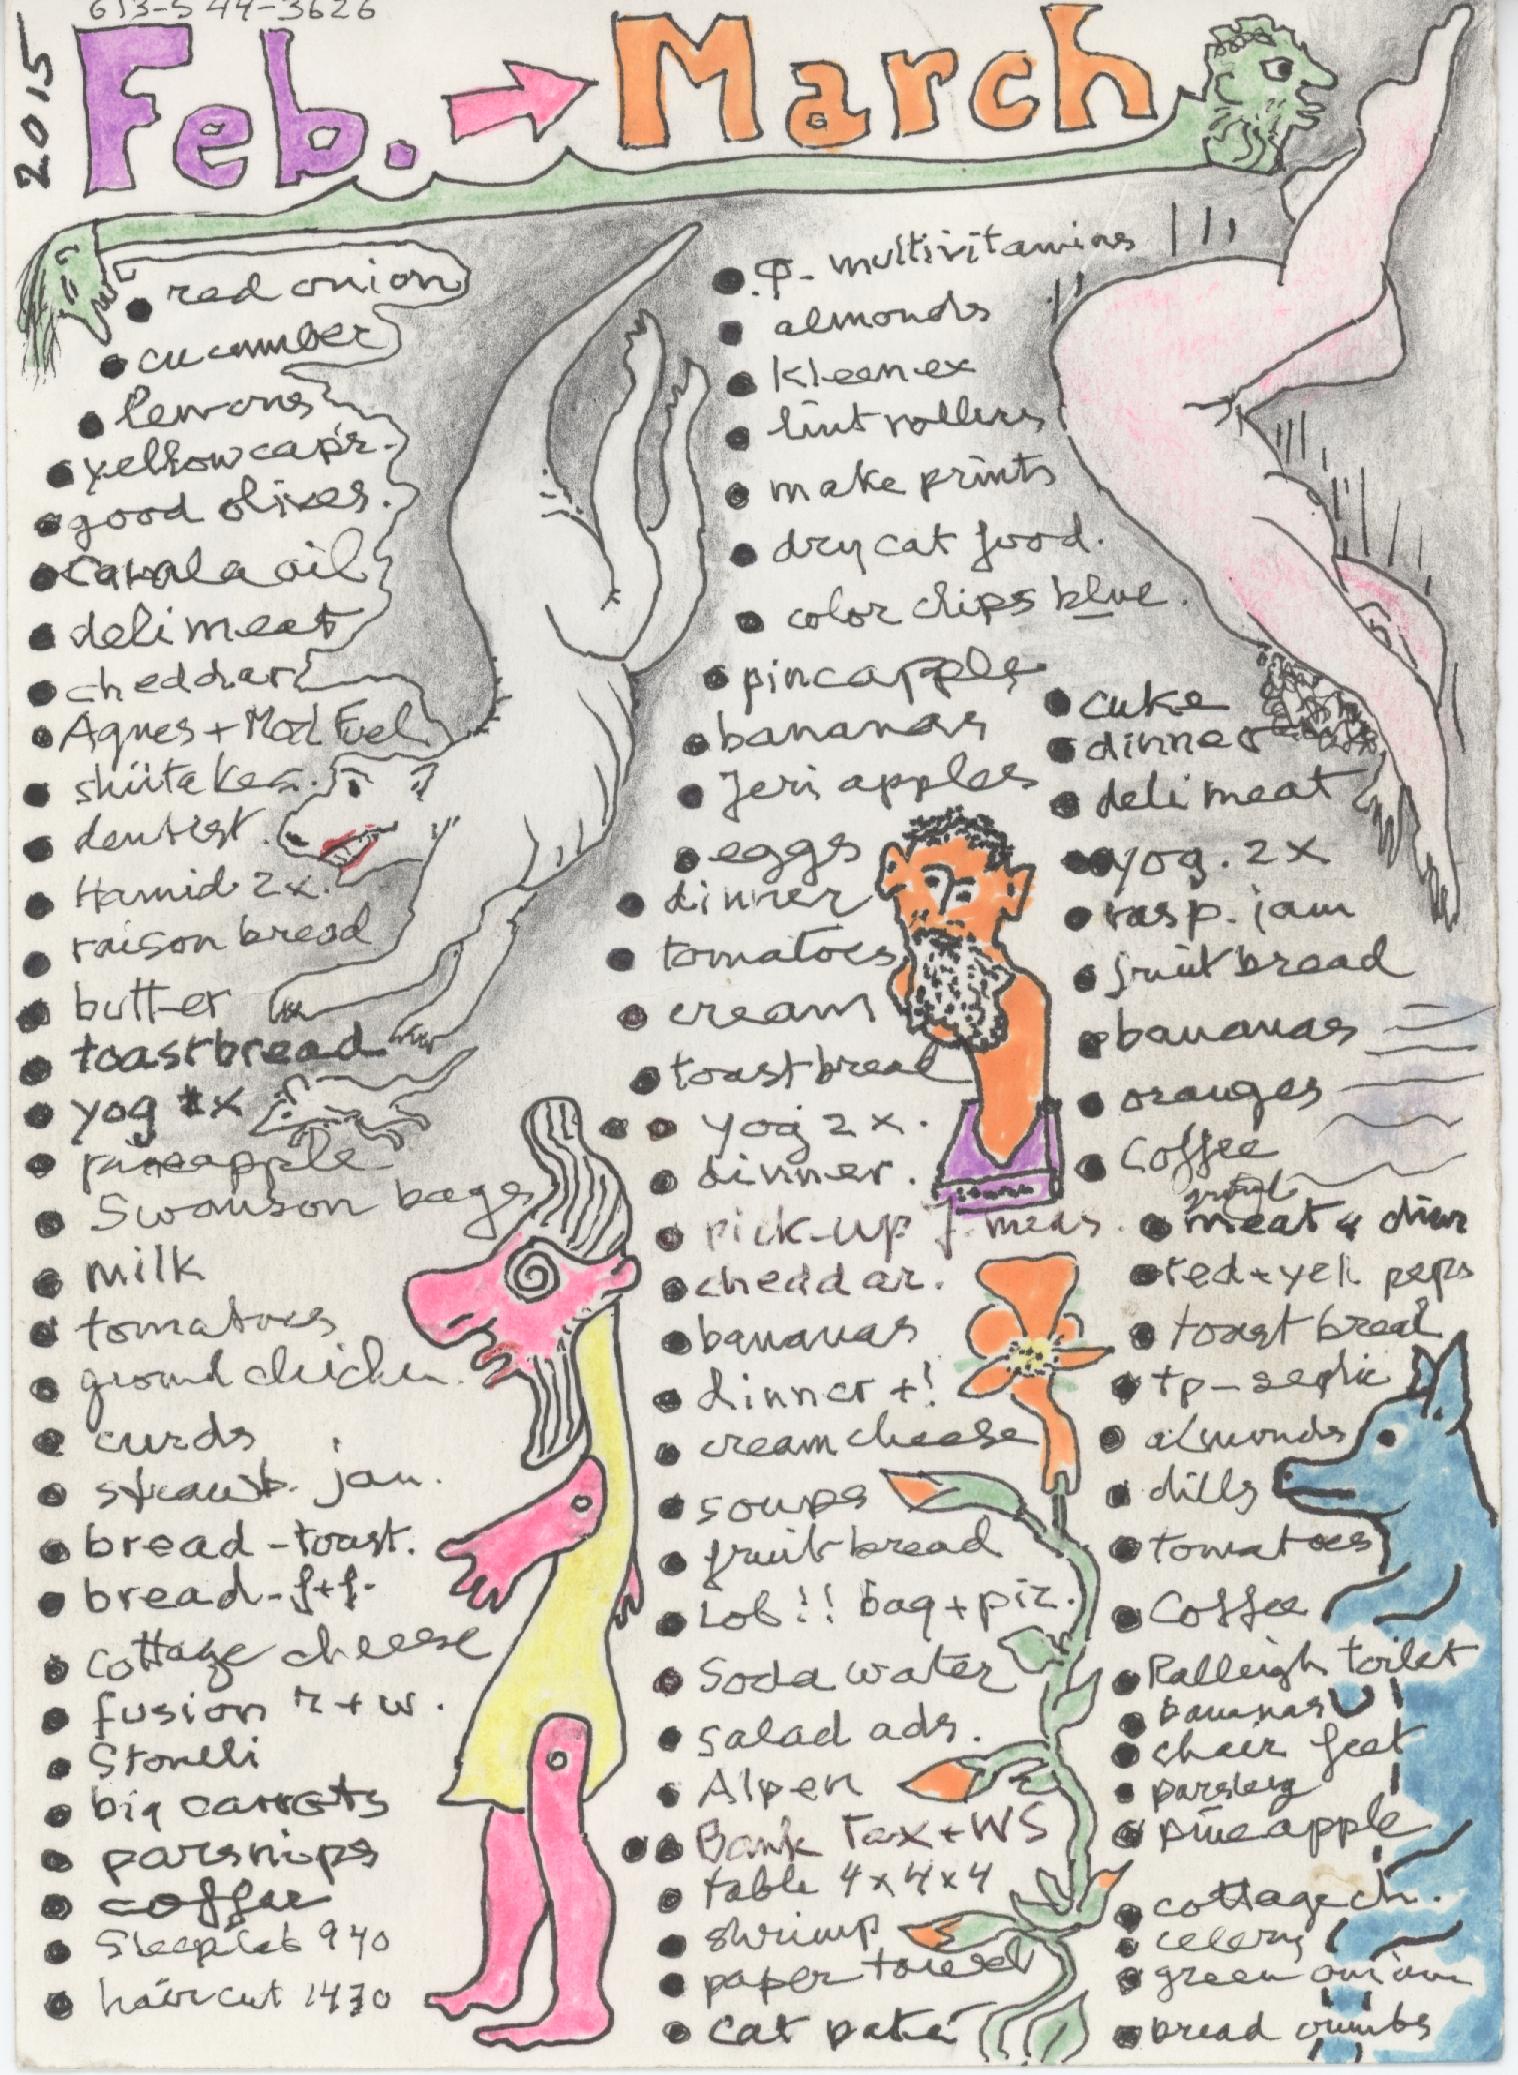 613-544-3626
2015
Feb. → March
red onion
cucumber
lemons
yellow cap'r.
good olives.
canola oil
deli meat
cheddar
Agnes + Mod Fuel
shiitakes.
dentist.
Hamid 2x.
raison bread
butter
toastbread
yog 2x
pineapple
Swanson bags
milk
tomatoes
ground chicken.
curds
strawb. jam.
bread-toast.
bread-f+f.
cottage cheese
fusion r+w.
Stoneli
big carrots
parsnips
coffee
Sleeplab 940
haircut 1430
multivitamins
almonds
kleenex
lint rollers
make prints
dry cat food.
color chips blue.
pineapple
bananas
Jeri apples
eggs
dinner
tomatoes
cream
toastbread
yog 2x.
dinner.
pick-up f. meas.
cheddar.
bananas
dinner +!
cream cheese
soups
fruit bread
Lob!! bag + piz.
Soda water
salad ads.
Alpen
Bank Tax + WS
table 4x4x4
shrimp
paper towel
cat paté
cuke
dinner
deli meat
yog. 2x
rasp. jam
fruit bread
bananas
oranges
Coffee
meat & dinr
red + yell peps
toast bread
tp-septic
almonds
dills
tomatoes
Coffee
Ralleigh toilet
bananas
chair feet
parsley
pineapple
cottage ch.
celery
green onion
bread crumbs